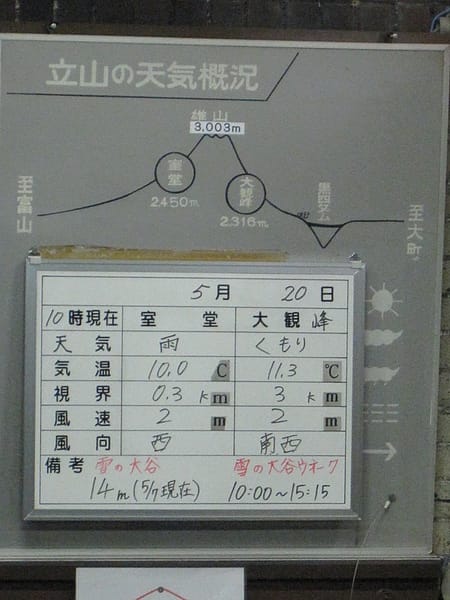 立山の天気概況
雄山
3.003m
室堂
2.450m
大観峰
2.316m
黒四ダム
至富山
至大町
5月 20日
10時現在 室堂 大観峰
天気 雨 くもり
気温 10.0 C 11.3 ℃
視界 0.3 km 3 km
風速 2 m 2 m
風向 西 南西
備考 雪の大谷 雪の大谷ウォーク
14m(5/7現在) 10:00~15:15